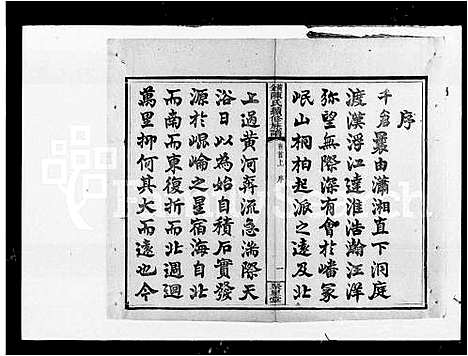 序
千倉曩由瀟湘直下洞庭
渡漢浮江達淮浩瀚汪洋
弥望無際深有會於嶓冢
岷山桐柏起派之遠及北
陳氏續修族譜
卷首上 序
一
上過黃河奔流急湍際天
浴日以為始自積石實發
源於崐崙之星宿海自北
而南而東復折而北週迴
萬里抑何其大而遠也今